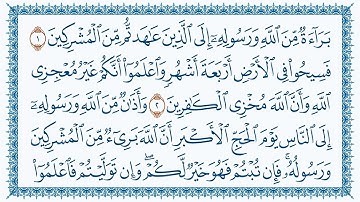 بَرَآءَةٌ مِّنَ ٱللَّهِ وَرَسُولِهِۦٓ إِلَى ٱلَّذِينَ عَٰهَدتُّم مِّنَ ٱلۡمُشۡرِكِينَ ١
فَسِيحُواْ فِي ٱلۡأَرۡضِ أَرۡبَعَةَ أَشۡهُرٖ وَٱعۡلَمُوٓاْ أَنَّكُمۡ غَيۡرُ مُعۡجِزِي
ٱللَّهِ وَأَنَّ ٱللَّهَ مُخۡزِي ٱلۡكَٰفِرِينَ ٢ وَأَذَٰنٞ مِّنَ ٱللَّهِ وَرَسُولِهِۦٓ
إِلَى ٱلنَّاسِ يَوۡمَ ٱلۡحَجِّ ٱلۡأَكۡبَرِ أَنَّ ٱللَّهَ بَرِيٓءٞ مِّنَ ٱلۡمُشۡرِكِينَ
وَرَسُولُهُۥۚ فَإِن تُبۡتُمۡ فَهُوَ خَيۡرٞ لَّكُمۡۖ وَإِن تَوَلَّيۡتُمۡ فَٱعۡلَمُوٓاْ